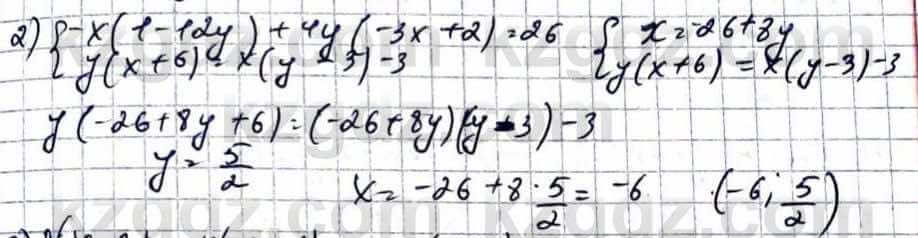 2) { -x(1-12y) + 4y(-3x+2) = 26   { x = -26+8y
{ y(x+6) = x(y-3)-3   { y(x+6) = x(y-3)-3
y(-26+8y+6) = (-26+8y)(y-3)-3
y = 5/2   x = -26+8·5/2 = -6   (-6; 5/2)